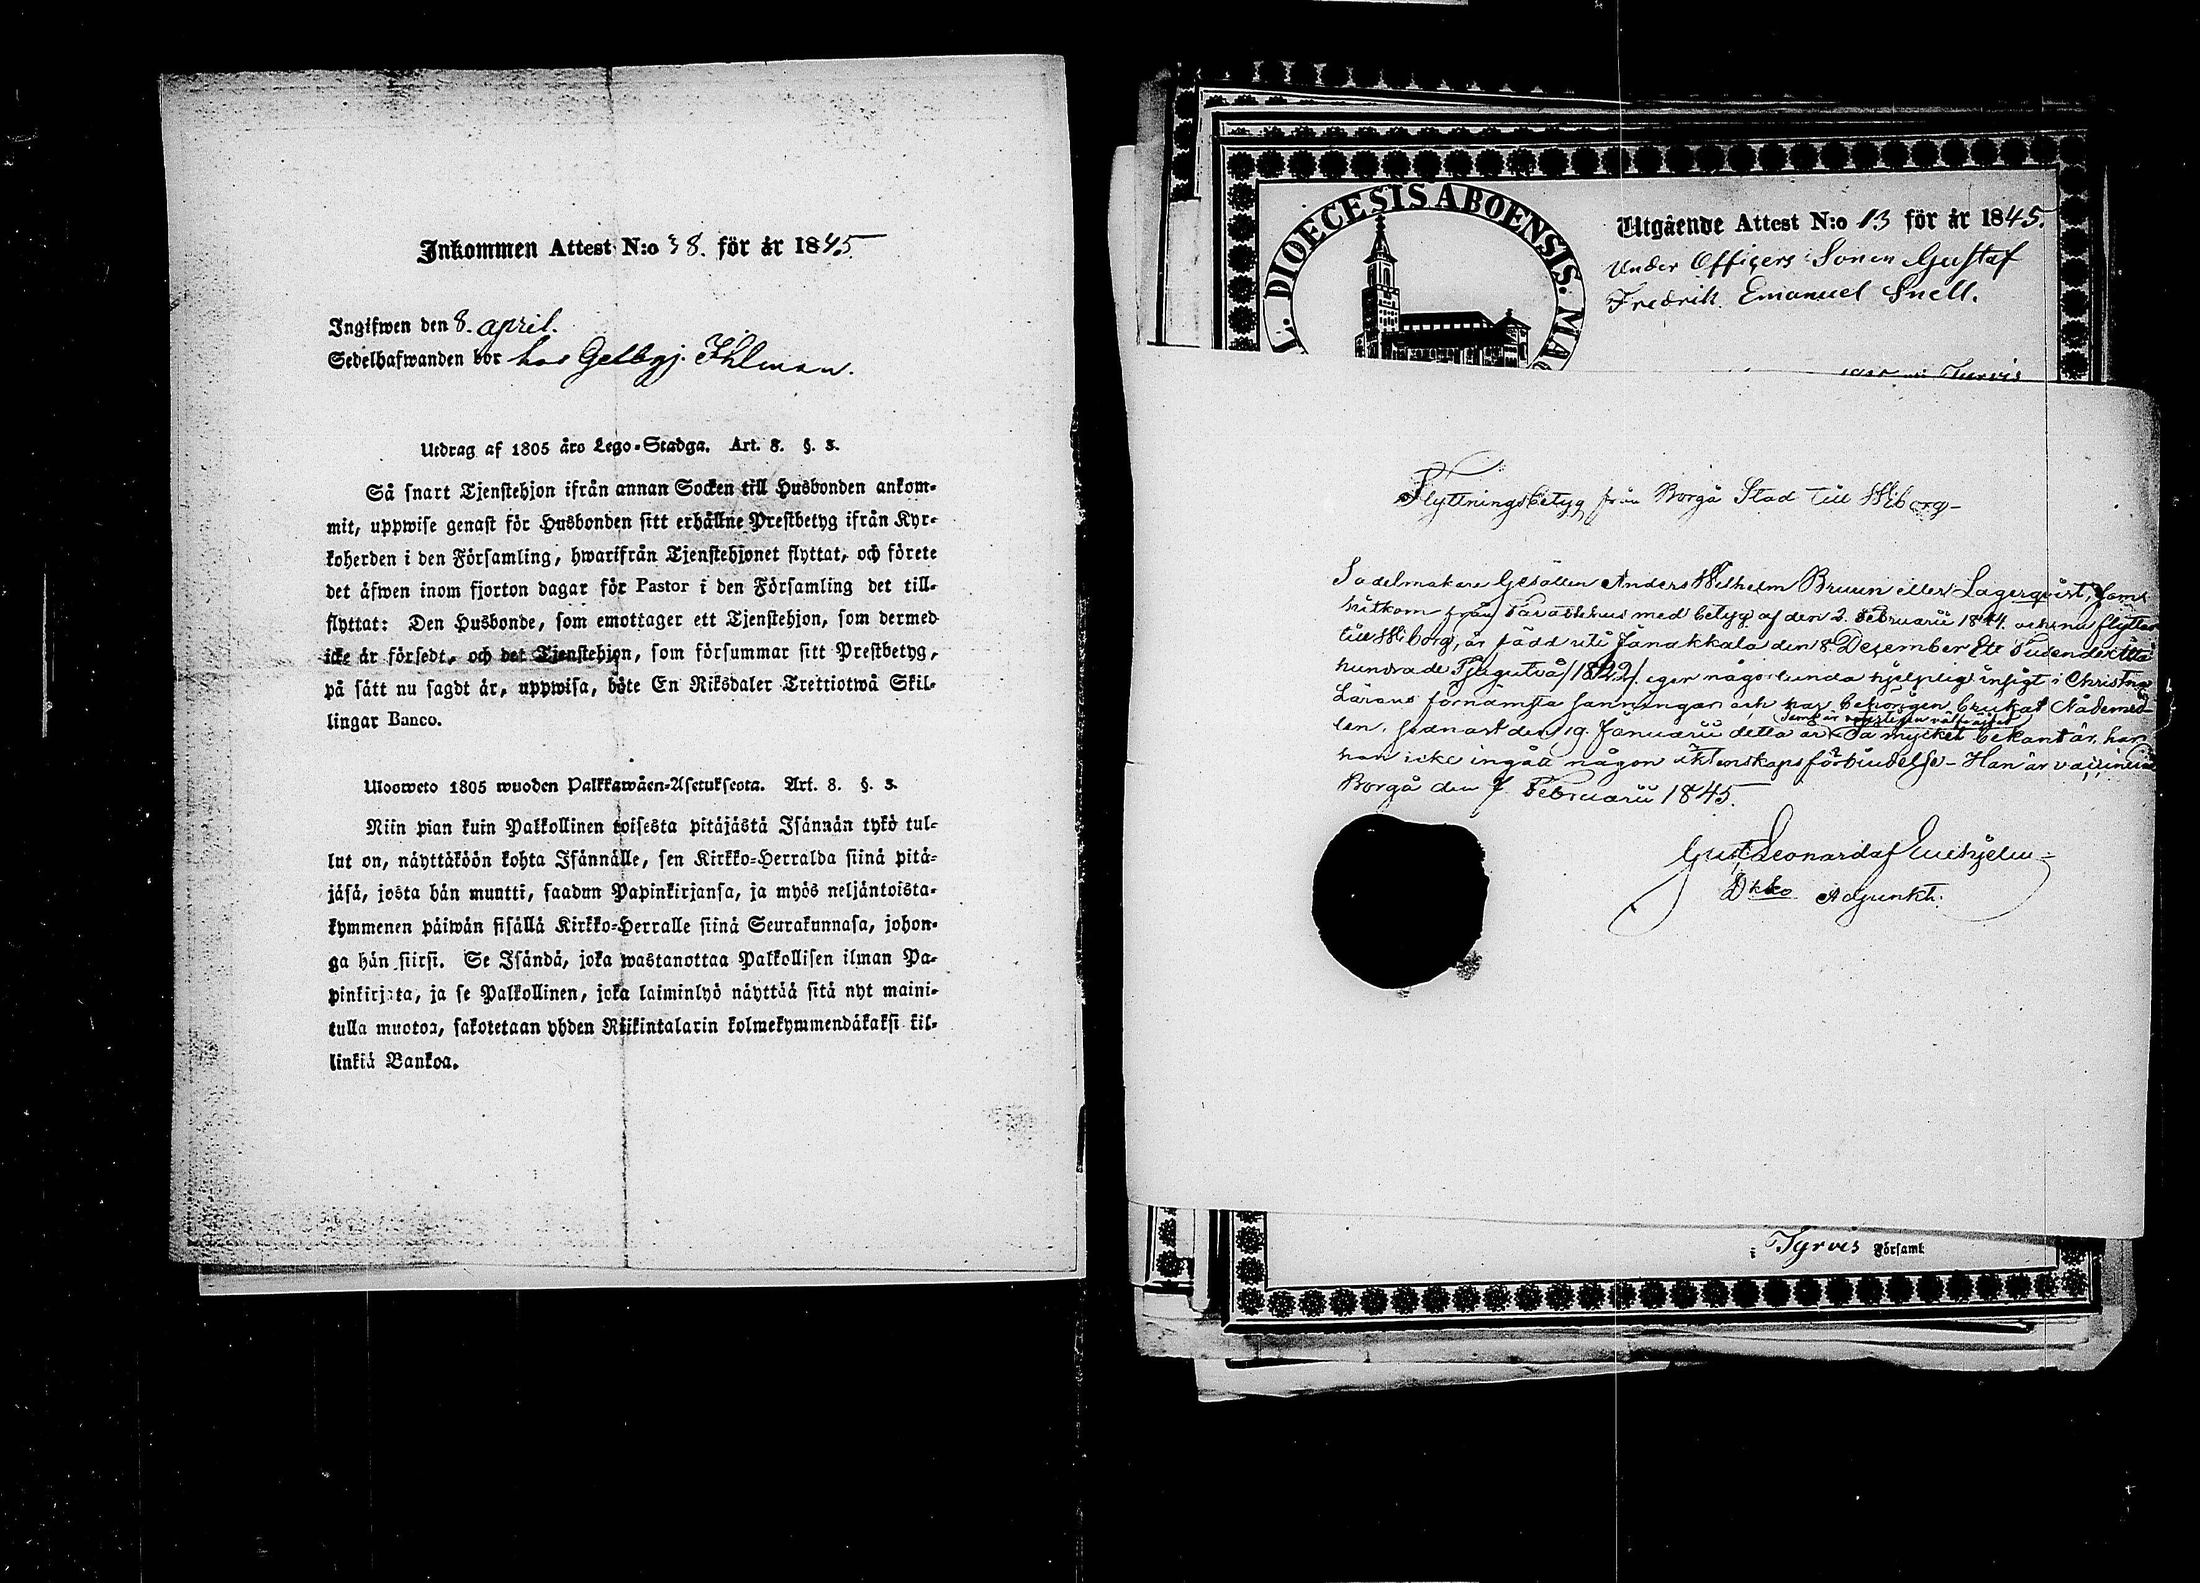 Inkommen Attest N:o 38. för år 1845.
Ingifwen den 8. april.
Sedelhafwanden bor hos Gelbgj. Ihlman.
Utdrag af 1805 års Lego-Stadga. Art. 8. §. 3.
Så snart Tjenstehjon ifrån annan Socken till Husbonden ankom-
mit, uppwise genast för Husbonden sitt erhållne Prestbetyg ifrån Kyr-
koherden i den Församling, hwarifrån Tjenstehjonet flyttat, och förete
det äfwen inom fjorton dagar för Pastor i den Församling det till-
flyttat: Den Husbonde, som emottager ett Tjenstehjon, som dermed
icke är försedt, och det Tjenstehjon, som försummar sitt Prestbetyg,
på sätt nu sagdt är, uppwisa, böte En Riksdaler Trettiotwå Skil-
lingar Banco.
Ulosweto 1805 wuoden Palkkawäen-Asetuksesta. Art. 8. §. 3.
Niin pian kuin Palkollinen toisesta pitäjästä Isännän tykö tul-
lut on, näyttäköön kohta Isännälle, sen Kirkko-Herralda siinä pitä-
jäsä, josta hän muutti, saadun Papinkirjansa, ja myös neljäntoista-
kymmenen päiwän sisällä Kirkko-Herralle siinä Seurakunnasa, johon-
ga hän siirsi. Se Isändä, joka wastanottaa Palkollisen ilman Pa-
pinkirjata, ja se Palkollinen, joka laiminlyö näyttää sitä nyt maini-
tulla muotoa, sakotetaan yhden Riikintalarin kolmekymmendäkaksi kil-
linkiä Bankoa.
DIOECESIS ABOENSIS. MA
Utgående Attest N:o 13 för år 1845.
Under Officers Sonen Gustaf
Fredrik Emanuel Snell.
Flyttningsbetyg från Borgå Stad till Wiborg-
Sadelmakare Gesällen Anders Wilhelm Bruun eller Lagerqvist, som
hitkom från Tavastehus med betyg af den 2 Februarii 1844. och nu flyttar
till Wiborg, är född uti Janakkala den 8 December Ett Tusende Åtta
hundrade Tjugutvå /1822/. eger någorlunda hjelplig insigt i Christna
Lärans förnämsta sanningar och har behörigen brukat Nådemed-
len, sednast den 19. Januarii detta år. Så mycket bekant är, har
han icke ingått någon äktenskapsförbindelse- Han är vaccinerad
Borgå den 7 Februarii 1845.
Gust. Leonard af
Adjunkt.
i Tyrvis Församl.